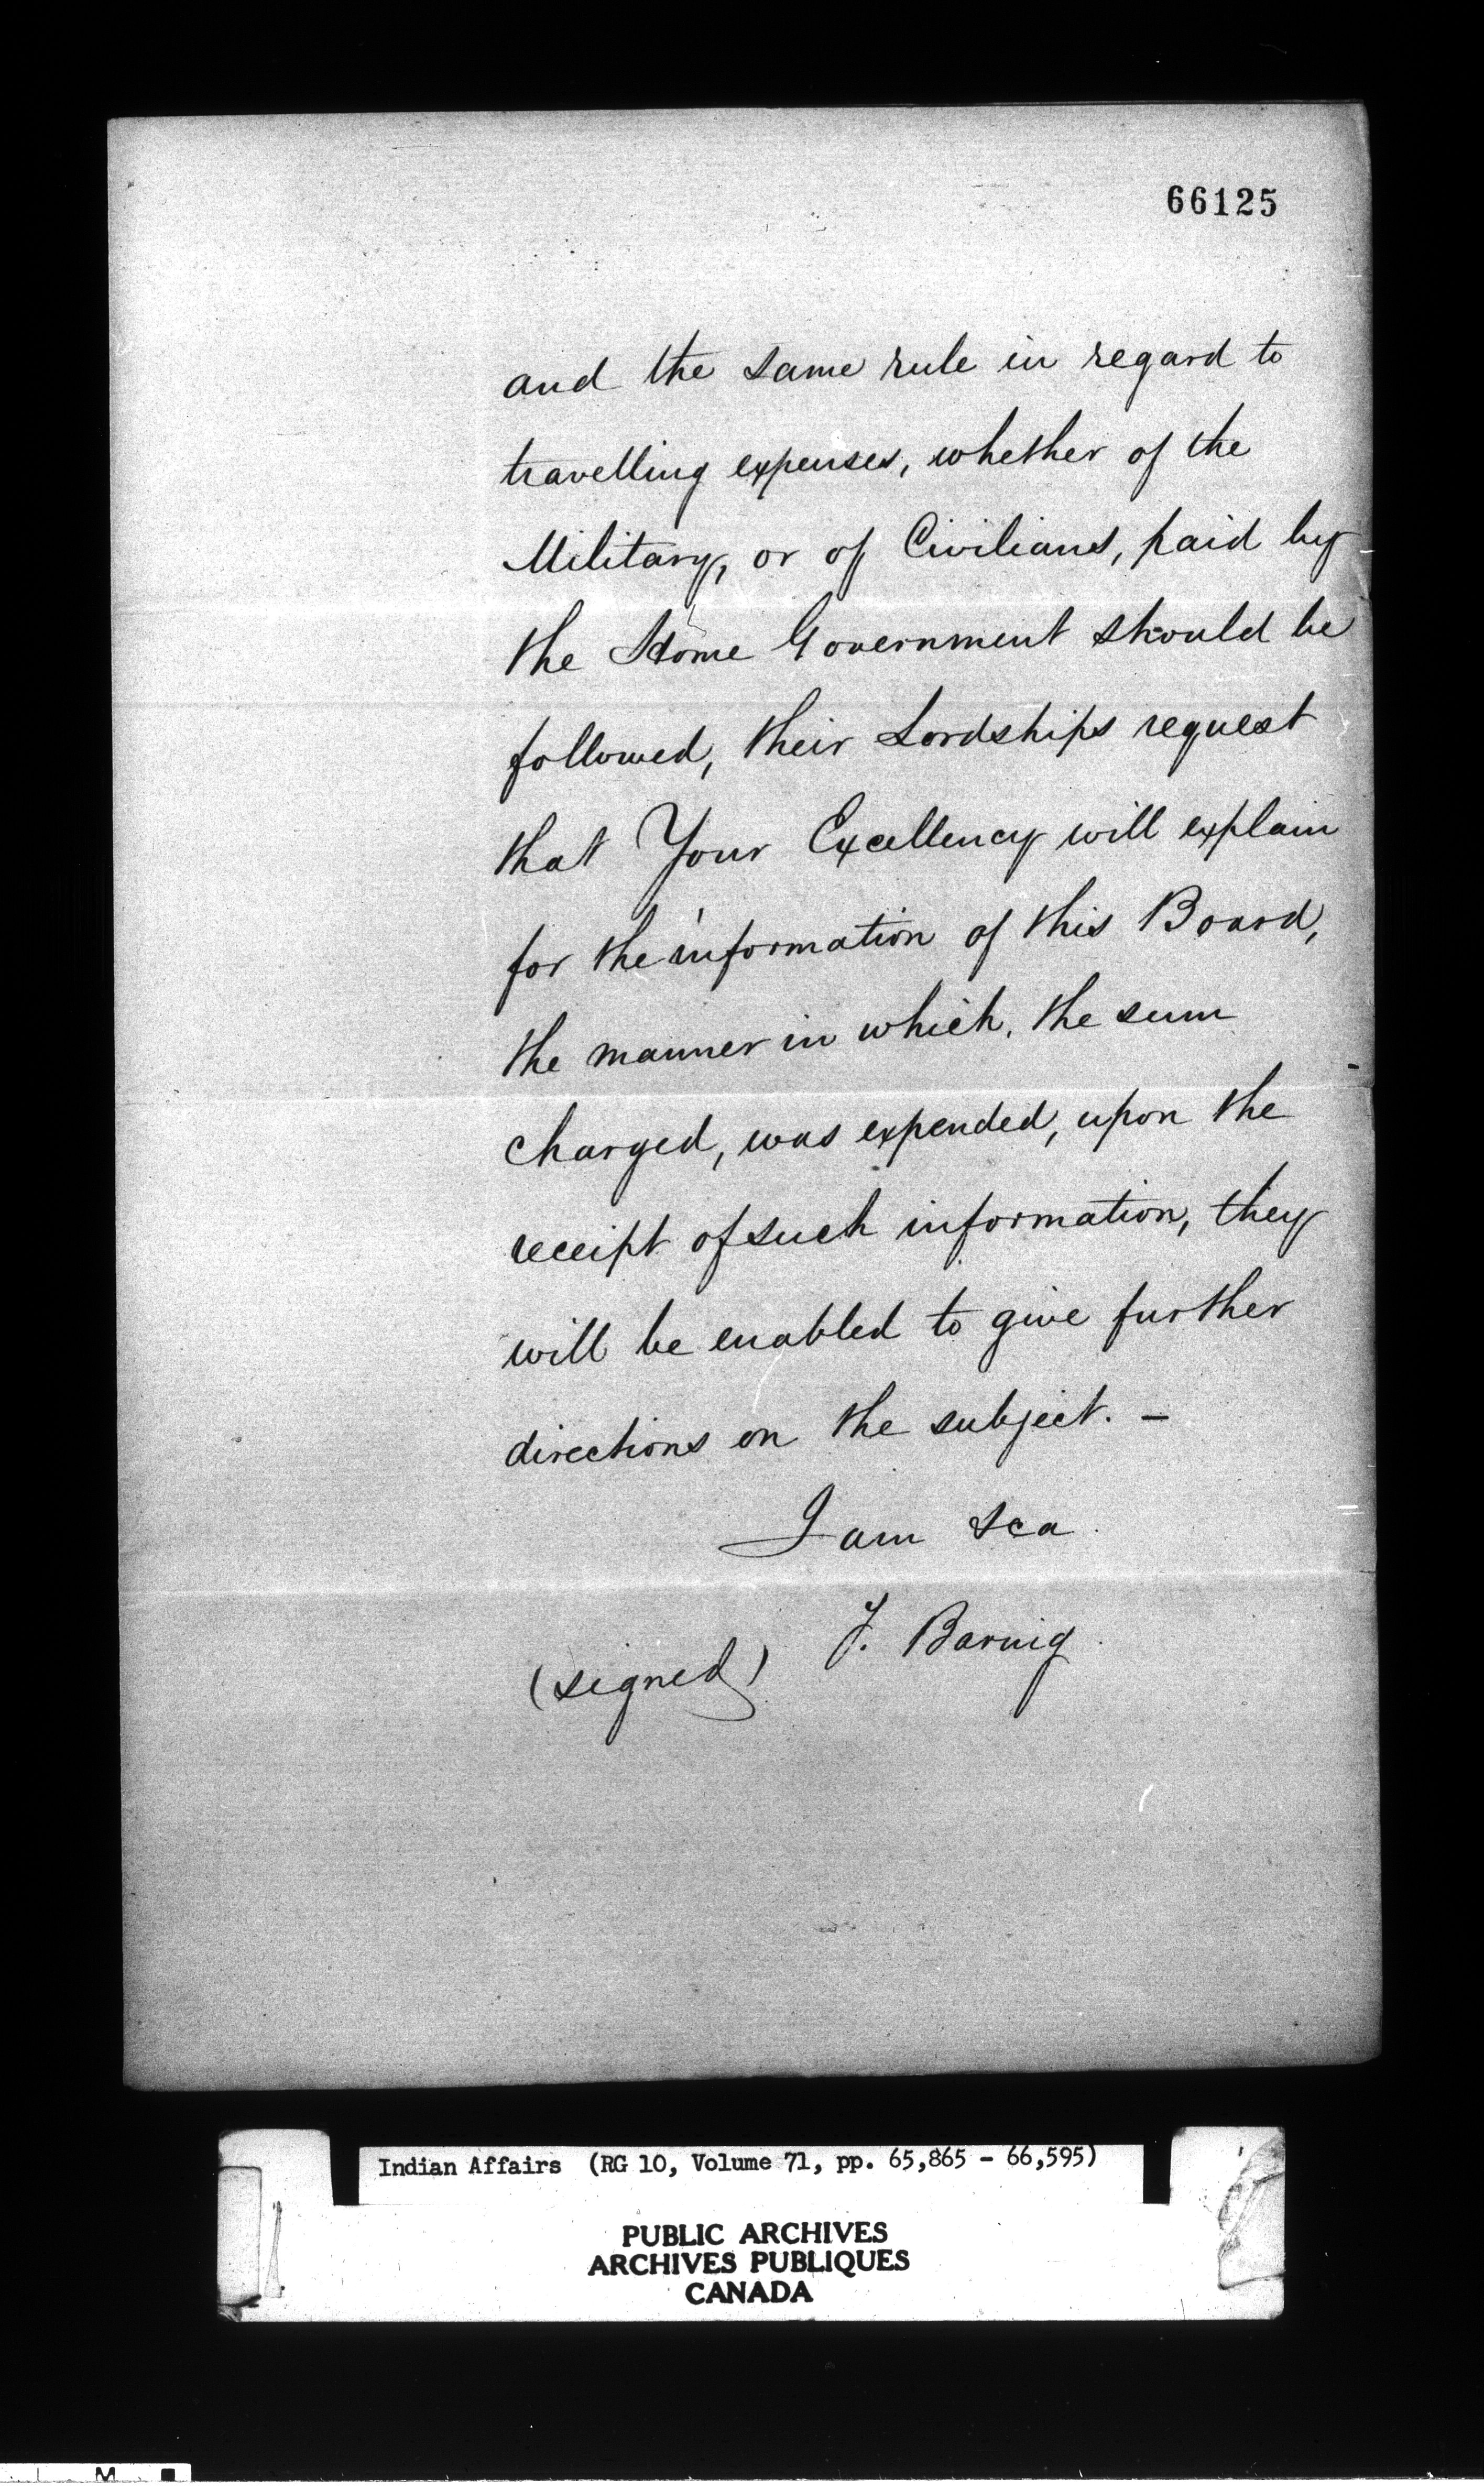 66125
and the same rule in regard to
travelling expenses, whether of the
Military, or of Civilians, paid by
the Home Government should be
followed, their Lordships request
that Your Excellency will explain
for the information of this Board,
the manner in which, the sum
charged, was expended, upon the
receipt of such information, they
will be enabled to give further
directions on the subject. –
I am &ca
(signed) F. Barnig
Indian Affairs (RG 10, Volume 71, pp. 65,865 - 66,595)
PUBLIC ARCHIVES
ARCHIVES PUBLIQUES
CANADA
M